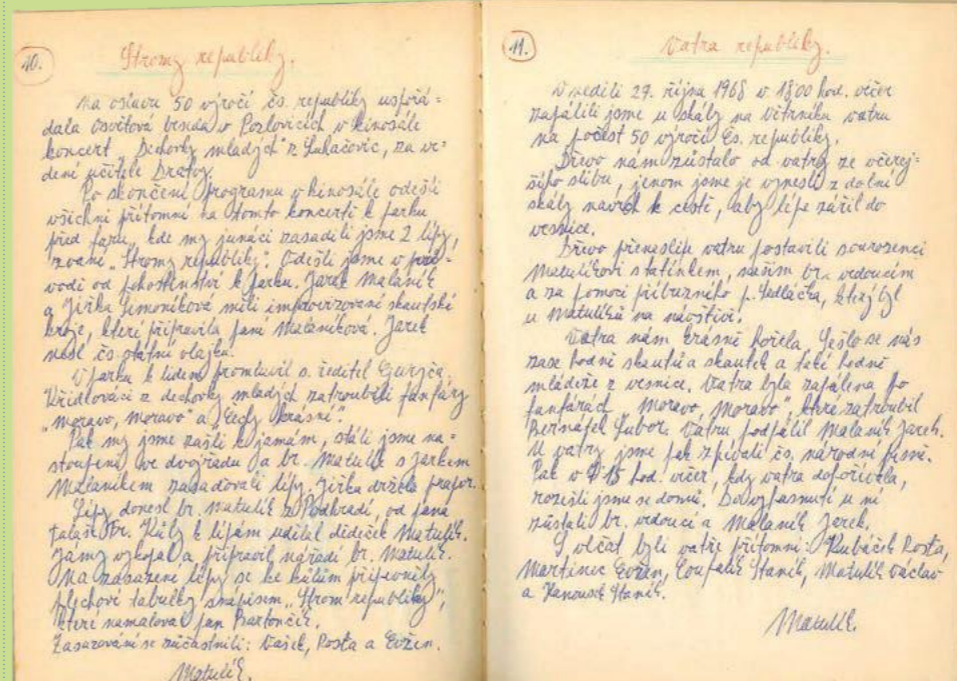 10.
Stromy republiky.
Na oslavu 50 výročí čs. republiky uspořá=
dala osvětová beseda v Pozlovicích v kinosále
koncert „Dechovky mladých" z Luhačovic, za ve=
dení učitele
Po skončení programu v kinosále odešli
všichni přítomní na tomto koncertě k parku
před farou, kde my junáci zasadili jsme 2 lípy,
zvané „Stromy republiky". Odešli jsme v prů=
vodi od pohostinství k parku. Jarek Malaník
a Jiřka Šimoníková měli improvizované skautské
kroje, které připravila paní Malaníková. Jarek
nesl čs státní vlajku.
U parku k lidem promluvil s. ředitel
Křídlováci z dechovky mladých zatroubili fanfáry
„Moravo, Moravo" a „Čechy krásné".
Pak my jsme zašli k jamám, stáli jsme na=
stoupeni ve dvojřadu a br. Matulík s Jarkem
Malaníkem zasadovali lípy. Jiřka držela prapor.
Lípy donesl br. Matulík z Podhradí, od pana
Kůly k lípám udělal dědeček Matulík.
Jámy vykopal a připravil nářadí br. Matulík.
Na zasazené lípy se ke kůlům připevnily
plechové tabulky s nápisem „Strom republiky",
které namaloval Jan Bartončík.
Zasazování se zúčastnili: Vašek, Rosťa a Evžen.
Matulík.
11.
Vatra republiky.
V neděli 27. října 1968 v 1800 hod. večer
zapálili jsme u skály na Větrníku vatru
na počest 50 výročí čs. republiky.
Dřevo nám zůstalo od vatry ze včerej=
šího slibu, jenom jsme je vynesli z dolní
skály navrch k cestě, aby lépe zářil do
vesnice.
Dřevo přenesli a vatru postavili sourozenci
Matulíkovi s tatínkem, naším br. vedoucím
a za pomoci příbuzného p. Sedláčka, který byl
u Matulíků na návštěvě.
Vatra nám krásně hořela. Sešlo se nás
zase hodně skautů a skautek a také hodně
mládeže z vesnice. Vatra byla zapálena po
fanfárách „Moravo, Moravo", které zatroubil
Lubor. Vatru podpálil Malaník Jarek.
U vatry jsme pak zpívali čs. národní písně.
Pak v 15 hod. večer, kdy vatra dohořívala,
rozešli jsme se domů. Do vyhasnutí u ní
zůstali br. vedoucí a Malaník Jarek.
S vlčat byli vatře přítomni: Kubáček Rosťa,
Martinec Evžen, Coufalík Staník, Matulík Václav
a Staník.
Matulík.